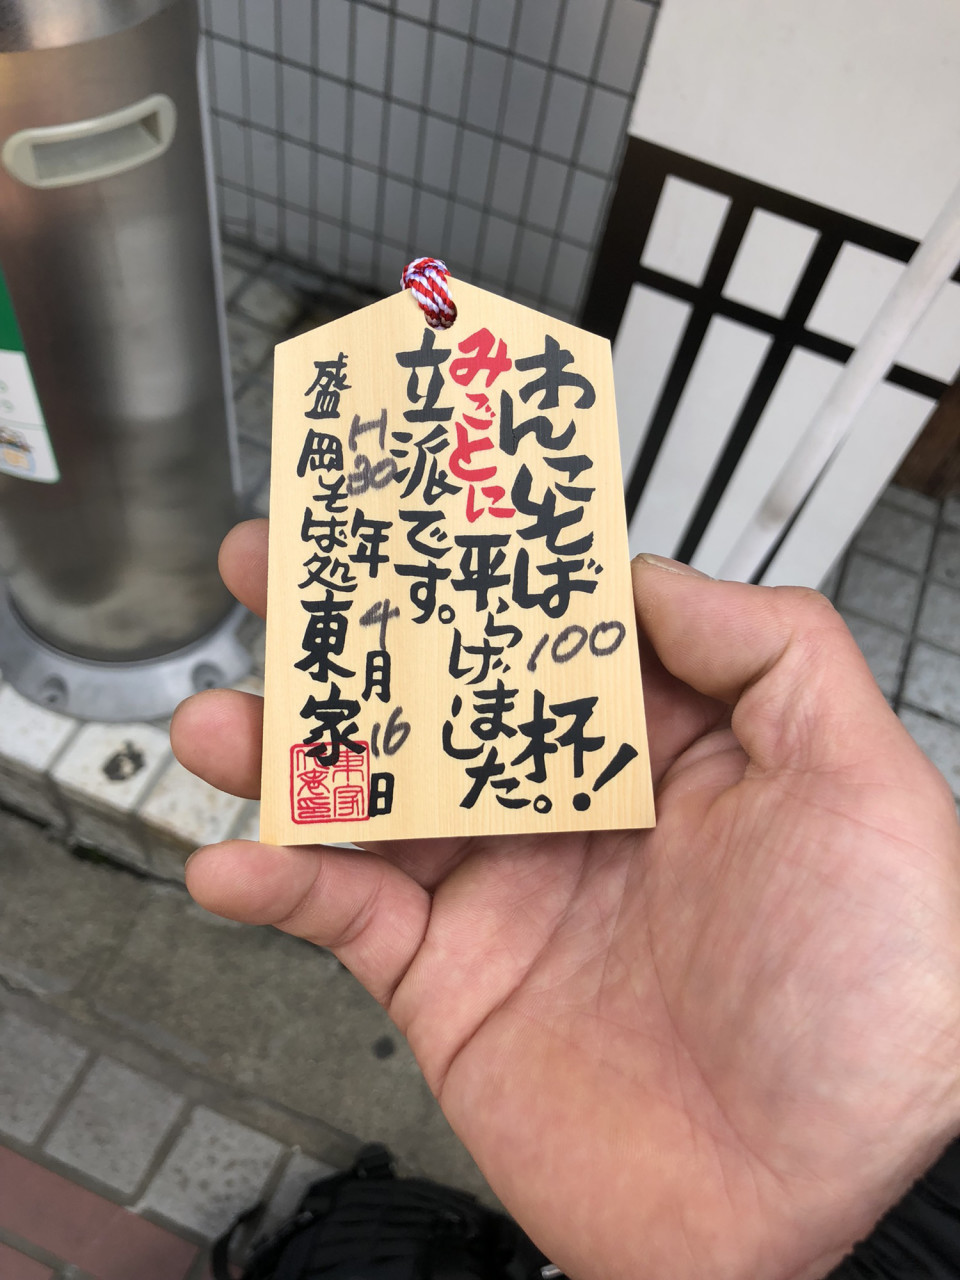 わんこそば100杯!
みごとに平らげました。
立派です。
H30年4月16日
盛岡そば処東家
東家